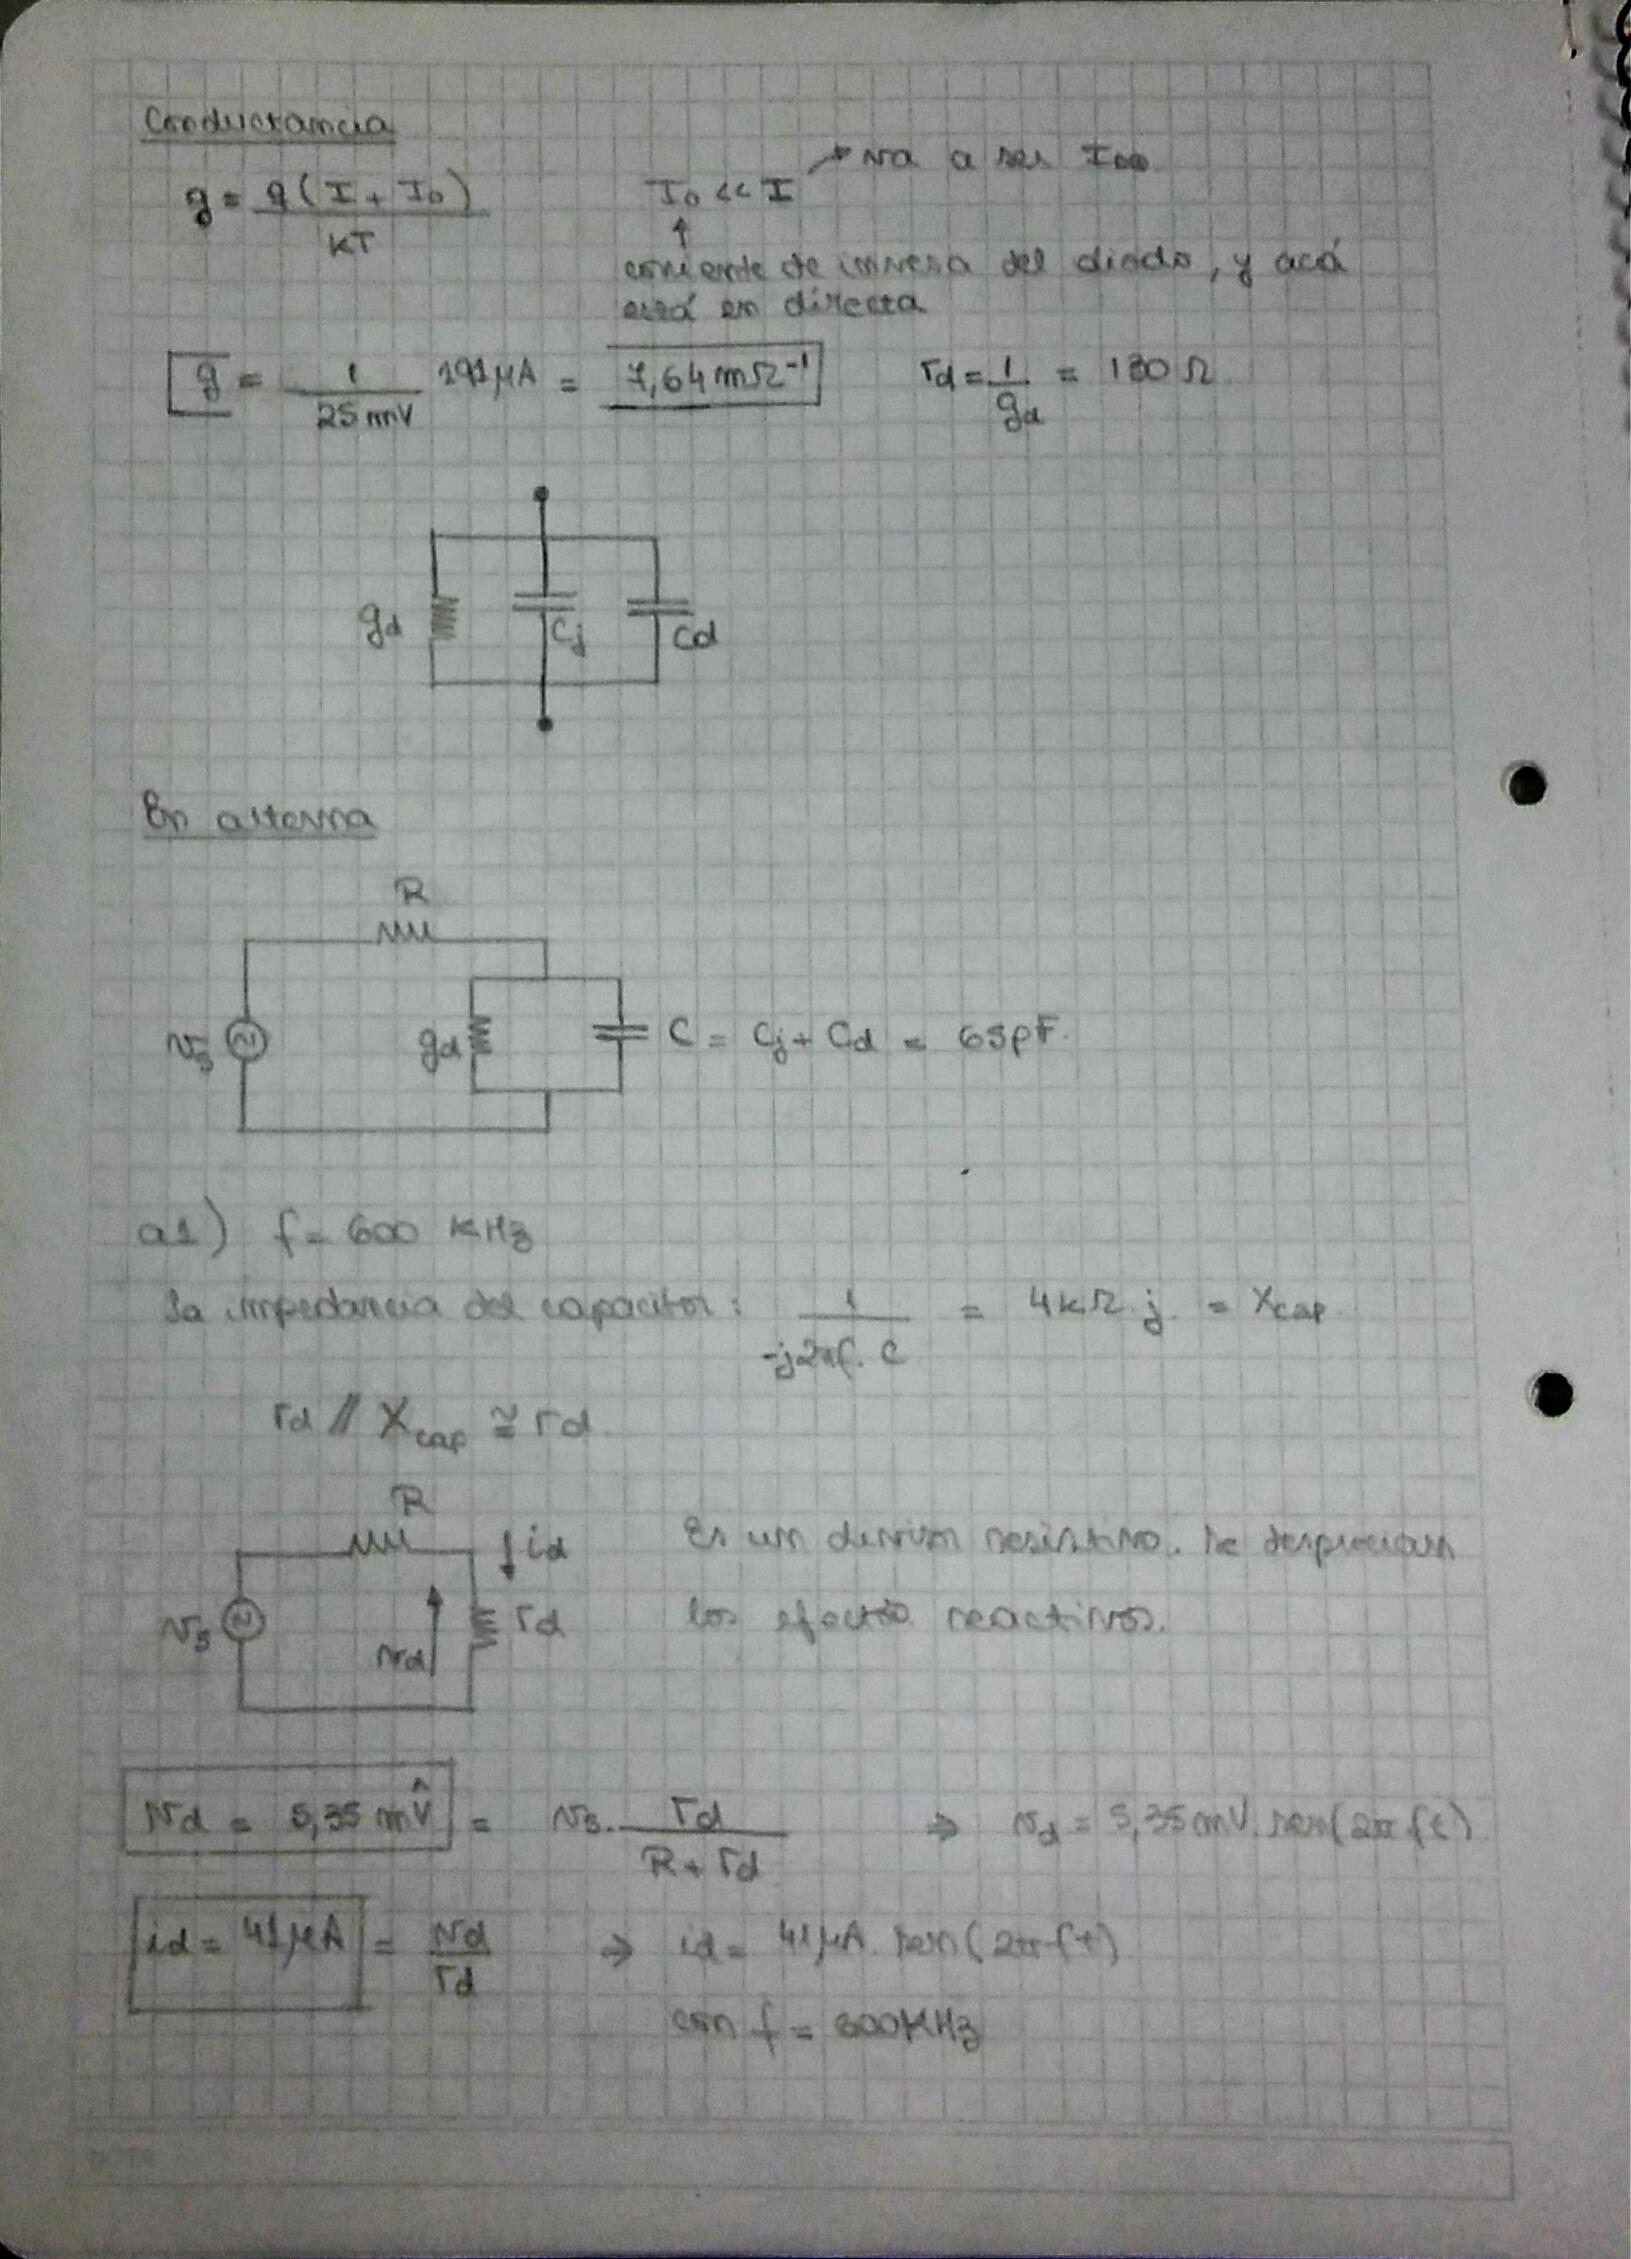 Conductancia
g = q(I + I₀) / kT
I₀ << I → va a ser I
↑
corriente de inversa del diodo, y acá
está en directa
g = 1 / 25 mV 191 μA = 7,64 mΩ⁻¹
rd = 1 / gd = 130 Ω
gd Cj Cd
En alterna
R
vs gd C = Cj + Cd = 65pF.
a1) f = 600 KHz
La impedancia del capacitor: 1 / -j2πf. C = 4kΩ j. = Xcap.
rd // Xcap ≅ rd.
R
id
vs vd rd
Es un divisor resistivo. Se desprecian
los efectos reactivos.
vd = 5,35 mV̂ = vs. rd / R + rd ⇒ vd = 5,35mV. sen(2π ft)
id = 41 μA = vd / rd ⇒ id = 41 μA. sen(2π ft)
con f = 600KHz
NOTA